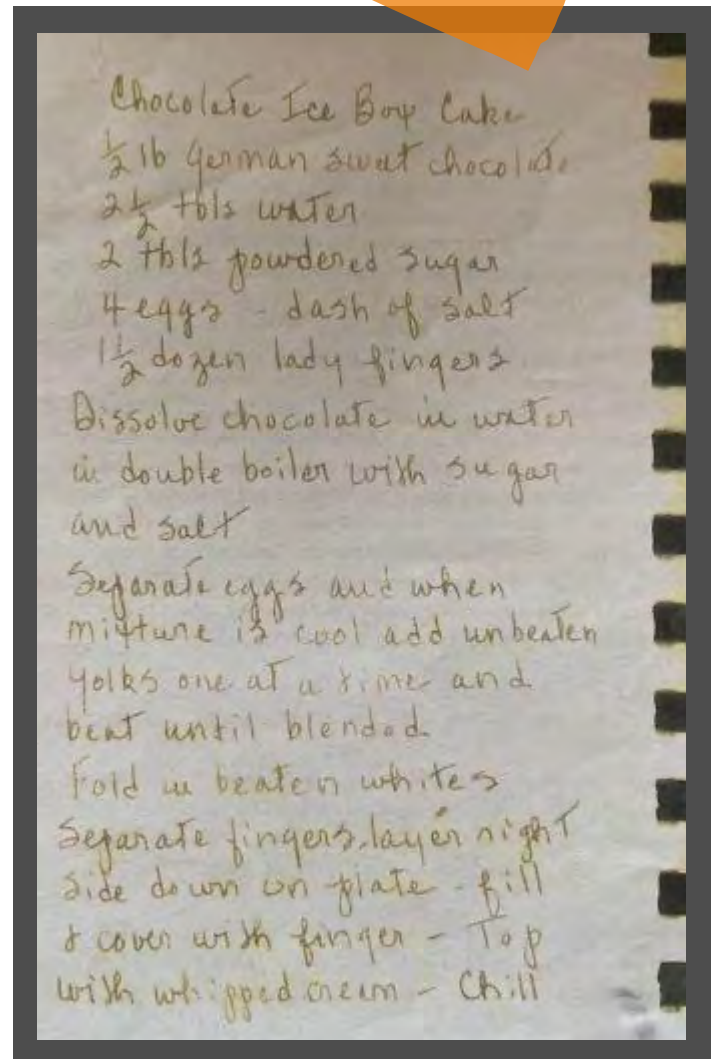 Chocolate Ice Box Cake
1/2 lb German sweet chocolate
2 1/2 tbls water
2 tbls powdered sugar
4 eggs - dash of salt
1 1/2 dozen lady fingers
Dissolve chocolate in water
in double boiler with sugar
and salt
Separate eggs and when
mixture is cool add unbeaten
yolks one at a time and
beat until blended
Fold in beaten whites
Separate fingers, layer right
side down on plate - fill
& cover with finger - Top
with whipped cream - Chill